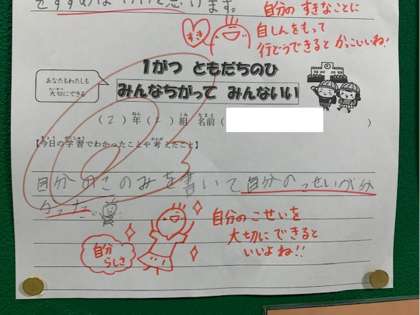 をすすめばいいと思います。
すき
自分のすきなことに
自しんをもって
行どうできるとかっこいいね!
あなたもわたしも
大切にできる
1がつ ともだちのひ
みんなちがって みんないい
(2)年( )組 名前(
【今日の学習でわかったことや考えたこと】
自分のこのみを書いて自分のこせいが分
かった。
自分のこせいを
大切にできると
いいよね!!
自分
らしさ